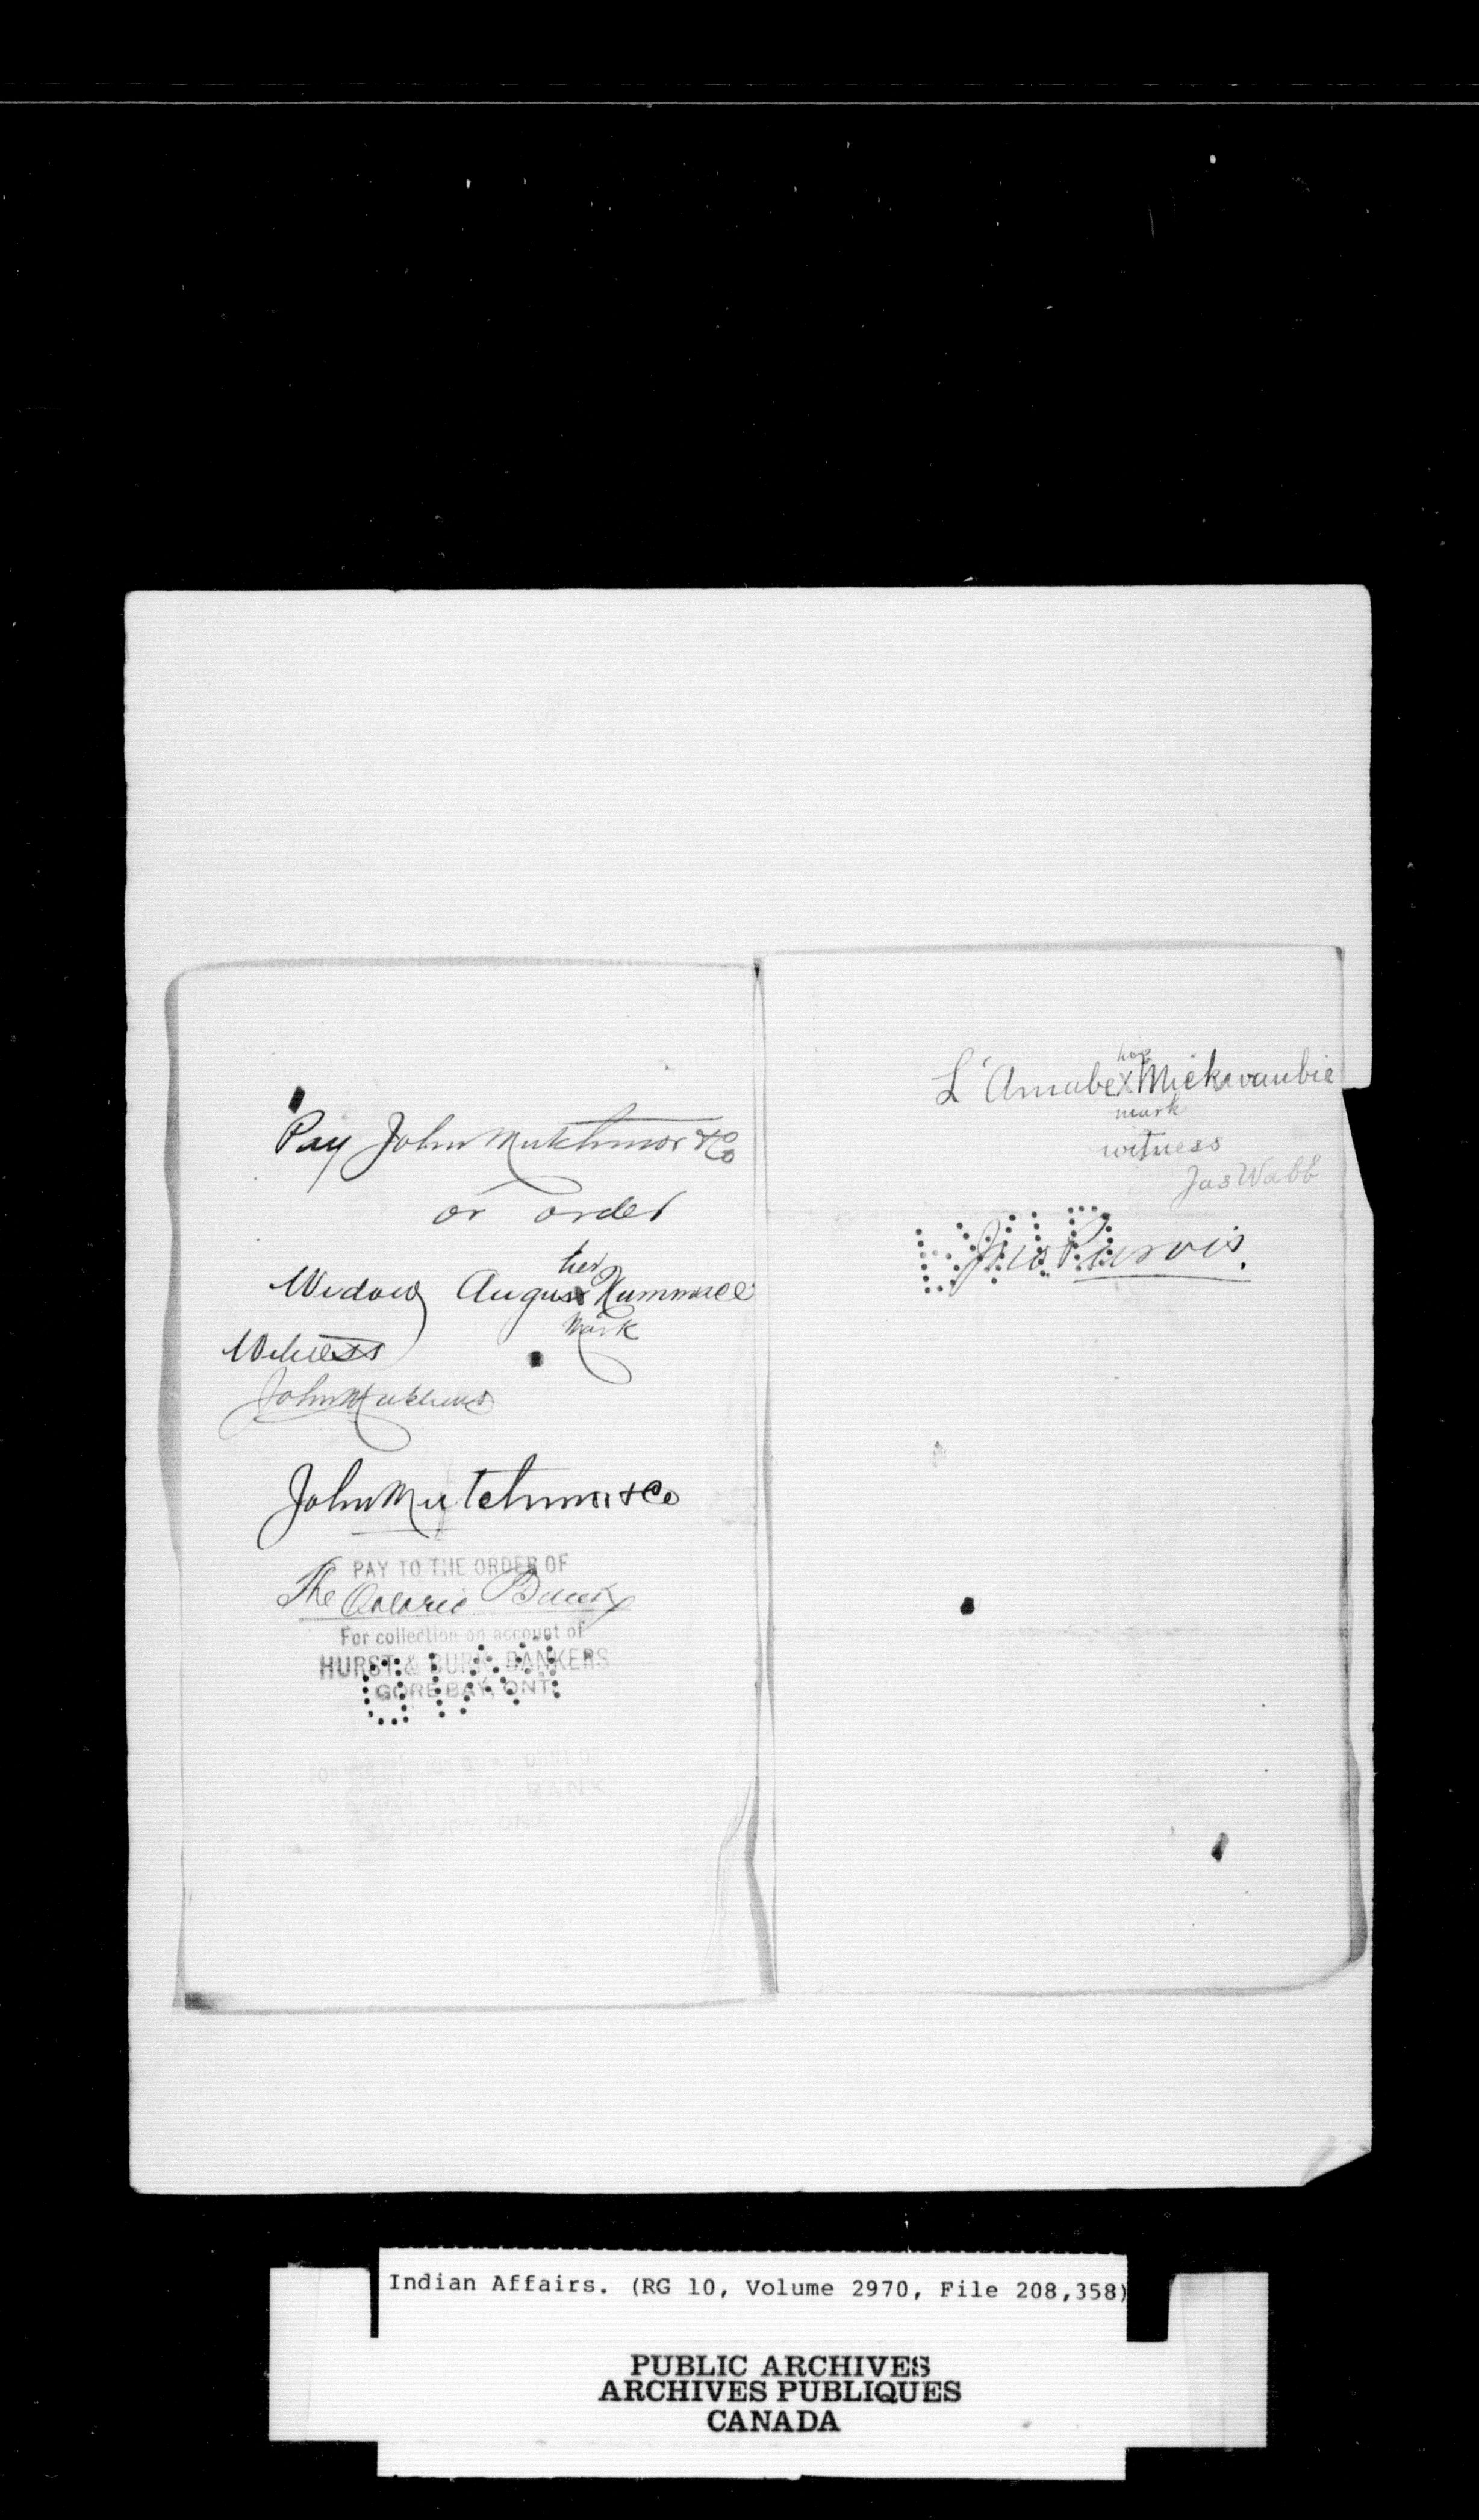 Pay John Mutchmor & Co
or order
her
Widow Angus x Kummace
Mark
Witness
John Mutchmor
John Mutchmor & Co
PAY TO THE ORDER OF
The Ontario Bank
For collection on account of
HURST & BURK, BANKERS
GORE BAY, ONT.
FOR COLLECTION ON ACCOUNT OF
THE ONTARIO BANK
SUDBURY, ONT.
his
L'Amabe X Mickwaubie
mark
witness
Jas Wabb
Jno Purvis.
Indian Affairs. (RG 10, Volume 2970, File 208,358)
PUBLIC ARCHIVES
ARCHIVES PUBLIQUES
CANADA